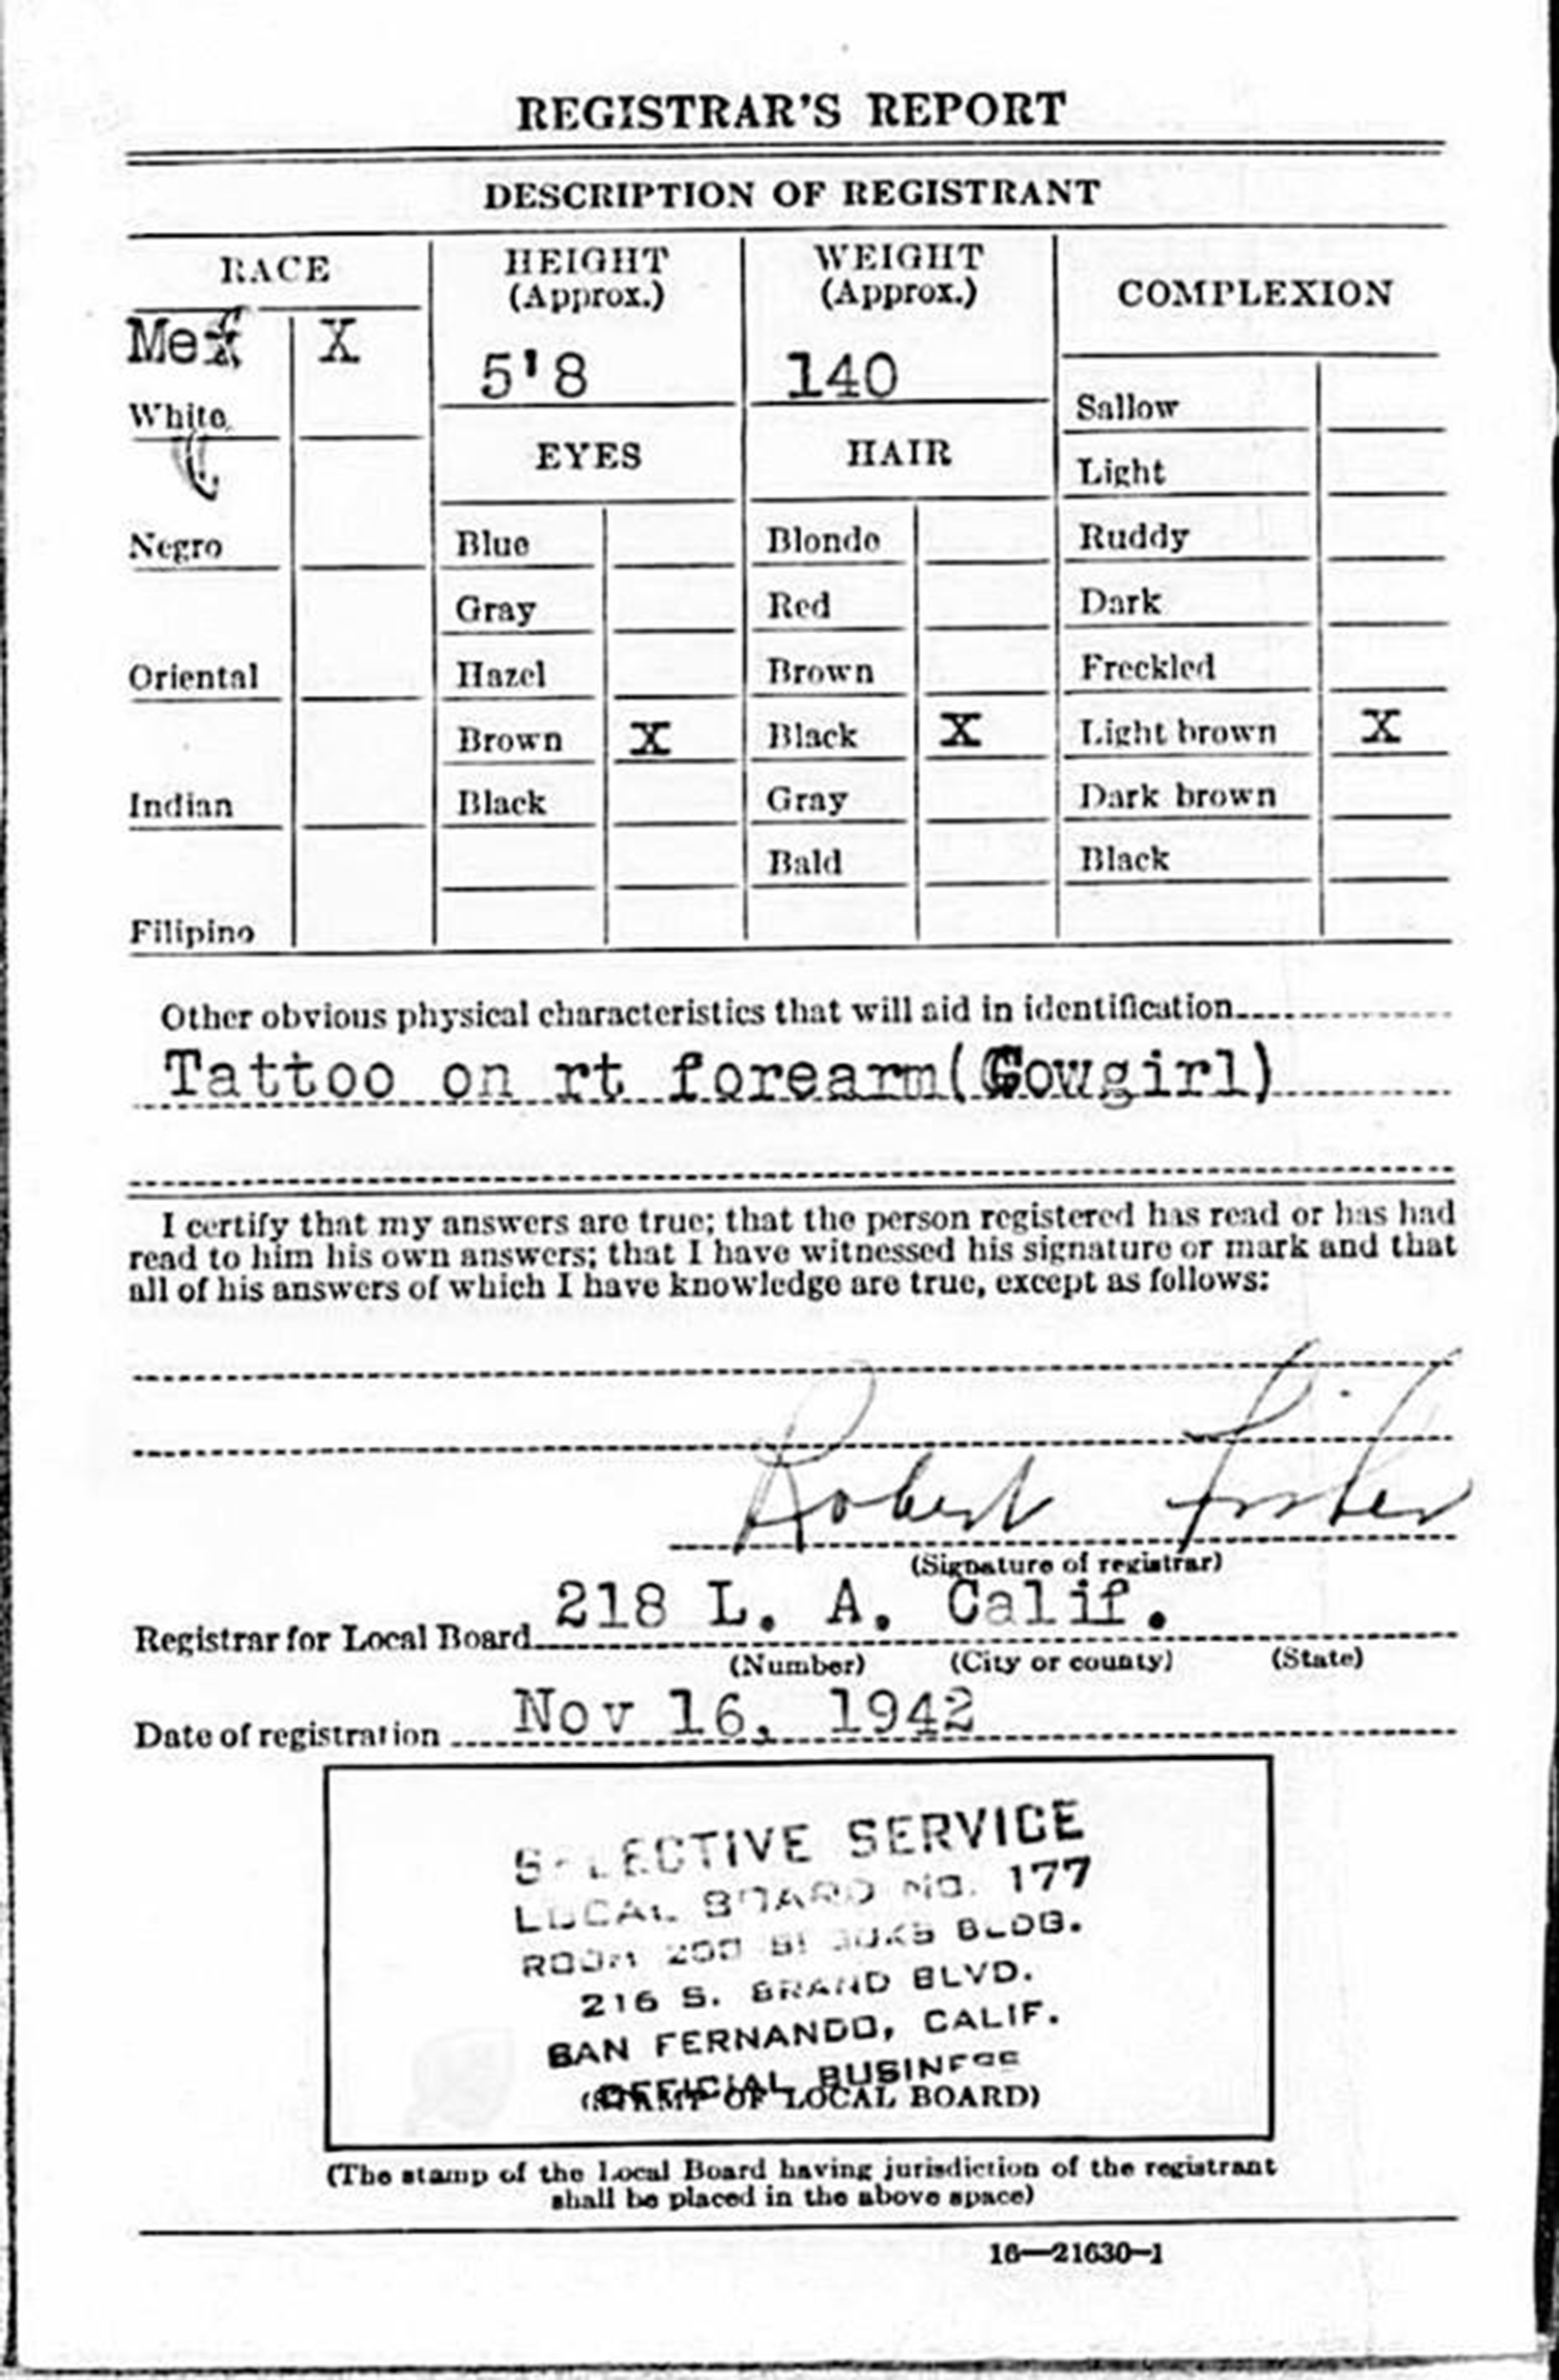 REGISTRAR'S REPORT
DESCRIPTION OF REGISTRANT
RACE
HEIGHT
(Approx.)
WEIGHT
(Approx.)
COMPLEXION
Mex X
5'8
140
White
Sallow
EYES
HAIR
Light
Negro
Blue
Blonde
Ruddy
Gray
Red
Dark
Oriental
Hazel
Brown
Freckled
Brown X
Black X
Light brown X
Indian
Black
Gray
Dark brown
Bald
Black
Filipino
Other obvious physical characteristics that will aid in identification
Tattoo on rt forearm(Cowgirl)
I certify that my answers are true; that the person registered has read or has had
read to him his own answers; that I have witnessed his signature or mark and that
all of his answers of which I have knowledge are true, except as follows:
Robert
(Signature of registrar)
Registrar for Local Board 218 L. A. Calif.
(Number) (City or county) (State)
Date of registration Nov 16, 1942
SELECTIVE SERVICE
LOCAL BOARD NO. 177
ROOM 200 BLDG.
216 S. BRAND BLVD.
SAN FERNANDO, CALIF.
OFFICIAL BUSINESS
(STAMP OF LOCAL BOARD)
(The stamp of the Local Board having jurisdiction of the registrant
shall be placed in the above space)
16—21630-1